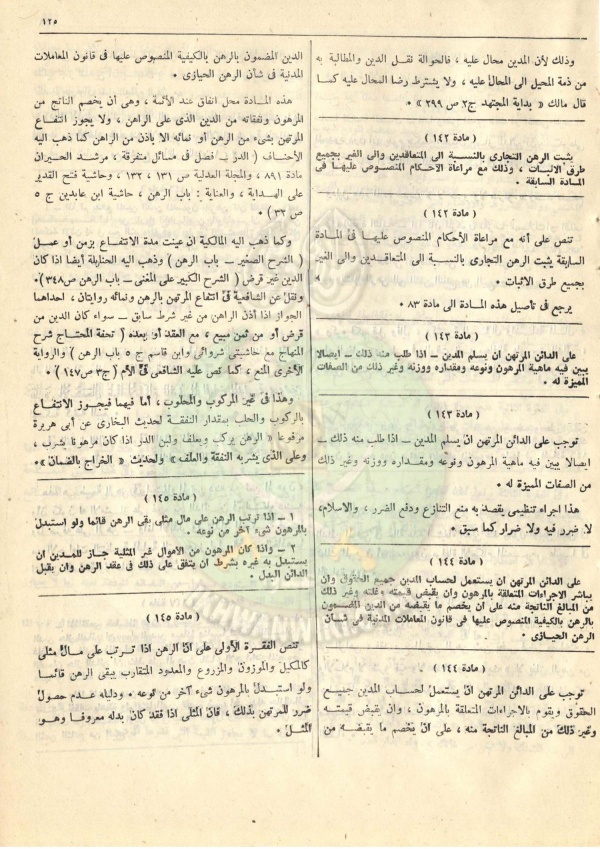 ١٢٥
وذلك لأن المدين محال عليه ، فالحوالة نقل الدين والمطالبة به
من ذمة المحيل الى المحال عليه ، ولا يشترط رضا المحال عليه كما
قال مالك « بداية المجتهد ج٢ ص ٢٩٩ » .
( مادة ١٤٢ )
يثبت الرهن التجارى بالنسبة الى المتعاقدين والى الغير بجميع
طرق الاثبات ، وذلك مع مراعاة الأحكام المنصوص عليها فى
المادة السابقة .
( مادة ١٤٢ )
تنص على أنه مع مراعاة الأحكام المنصوص عليها فى المادة
السابقة يثبت الرهن التجارى بالنسبة الى المتعاقدين والى الغير
بجميع طرق الاثبات .
يرجع فى تأصيل هذه المادة الى مادة ٨٣ .
( مادة ١٤٣ )
على الدائن المرتهن أن يسلم المدين ــ اذا طلب منه ذلك ــ ايصالا
يبين فيه ماهية المرهون ونوعه ومقداره ووزنه وغير ذلك من الصفات
المميزة له .
( مادة ١٤٣ )
توجب على الدائن المرتهن أن يسلم المدين ــ اذا طلب منه ذلك ــ
ايصالا يبين فيه ماهية المرهون ونوعه ومقداره ووزنه وغير ذلك
من الصفات المميزة له .
هذا اجراء تنظيمى يقصد به منع التنازع ودفع الضرر ، والاسلام،
لا ضرر فيه ولا ضرار كما سبق .
( مادة ١٤٤ )
على الدائن المرتهن أن يستعمل لحساب المدين جميع الحقوق وان
يباشر الاجراءات المتعلقة بالمرهون وان يقبض قيمته وغلته وغير ذلك
من المبالغ الناتجة منه على أن يخصم ما يقبضه من الدين المضمون
بالرهن بالكيفية المنصوص عليها فى قانون المعاملات المدنية فى شأن
الرهن الحيازى .
( مادة ١٤٤ )
توجب على الدائن المرتهن أن يستعمل لحساب المدين جميع
الحقوق ويقوم بالاجراءات المتعلقة بالمرهون ، وان يقبض قيمته
وغير ذلك من المبالغ الناتجة منه ، على أن يخصم ما يقبضه من
الدين المضمون بالرهن بالكيفية المنصوص عليها فى قانون المعاملات
المدنية فى شأن الرهن الحيازى .
هذه المادة محل اتفاق عند الأئمة ، وهى أن يخصم الناتج من
المرهون ونفقاته من الدين الذى على الراهن ، ولا يجوز انتفاع
المرتهن بشىء من الرهن أو نمائه الا باذن من الراهن كما ذهب اليه
الأحناف ( الدر ــ فصل فى مسائل متفرقة ، مرشد الحيران
مادة ٨٩١ ، والمجلة العدلية ص ١٣١ ، ١٣٢ ، وحاشية فتح القدير
على الهداية ، والعناية : باب الرهن ، حاشية ابن عابدين ج ٥
ص ٣٣ ) .
وكما ذهب اليه المالكية ان عينت مدة الانتفاع بزمن أو عمل
( الشرح الصغير ــ باب الرهن ) وذهب اليه الحنابلة أيضا اذا كان
الدين غير قرض ( الشرح الكبير على المغنى ــ باب الرهن ص٣٤٨ ) .
ونقل عن الشافعية فى انتفاع المرتهن بالرهن ونمائه روايتان ، احداهما
الجواز اذا أذن الراهن من غير شرط سابق ــ سواء كان الدين من
قرض أو من ثمن مبيع ، مع العقد أو بعده ( تحفة المحتاج شرح
المنهاج مع حاشيتى شروانى وابن قاسم ج٥ باب الرهن ) والرواية
الأخرى المنع ، كما نص عليه الشافعى فى الأم ( ج٣ ص١٤٧ ) .
وهذا فى غير المركوب والمحلوب ، أما فيهما فيجوز الانتفاع
بالركوب والحلب بمقدار النفقة لحديث البخارى عن أبى هريرة
مرفوعا « الرهن يركب ويعلف ولبن الدر اذا كان مرهونا يشرب ،
وعلى الذى يشربه النفقة والعلف » ولحديث « الخراج بالضمان » .
( مادة ١٤٥ )
١ ــ اذا ترتب الرهن على مال مثلى بقى الرهن قائما ولو استبدل
بالمرهون شىء آخر من نوعه .
٢ ــ واذا كان المرهون من الأموال غير المثلية جاز للمدين أن
يستبدل به غيره بشرط ان يتفق على ذلك فى عقد الرهن وان يقبل
الدائن البدل .
( مادة ١٤٥ )
تنص الفقرة الأولى على أن الرهن اذا ترتب على مال مثلى
كالمكيل والموزون والمزروع والمعدود المتقارب يبقى الرهن قائما
ولو استبدل بالمرهون شىء آخر من نوعه . ودليله عدم حصول
ضرر للمرتهن بذلك ، فان المثلى اذا فقد كان بدله معروفا وهو
المثل .